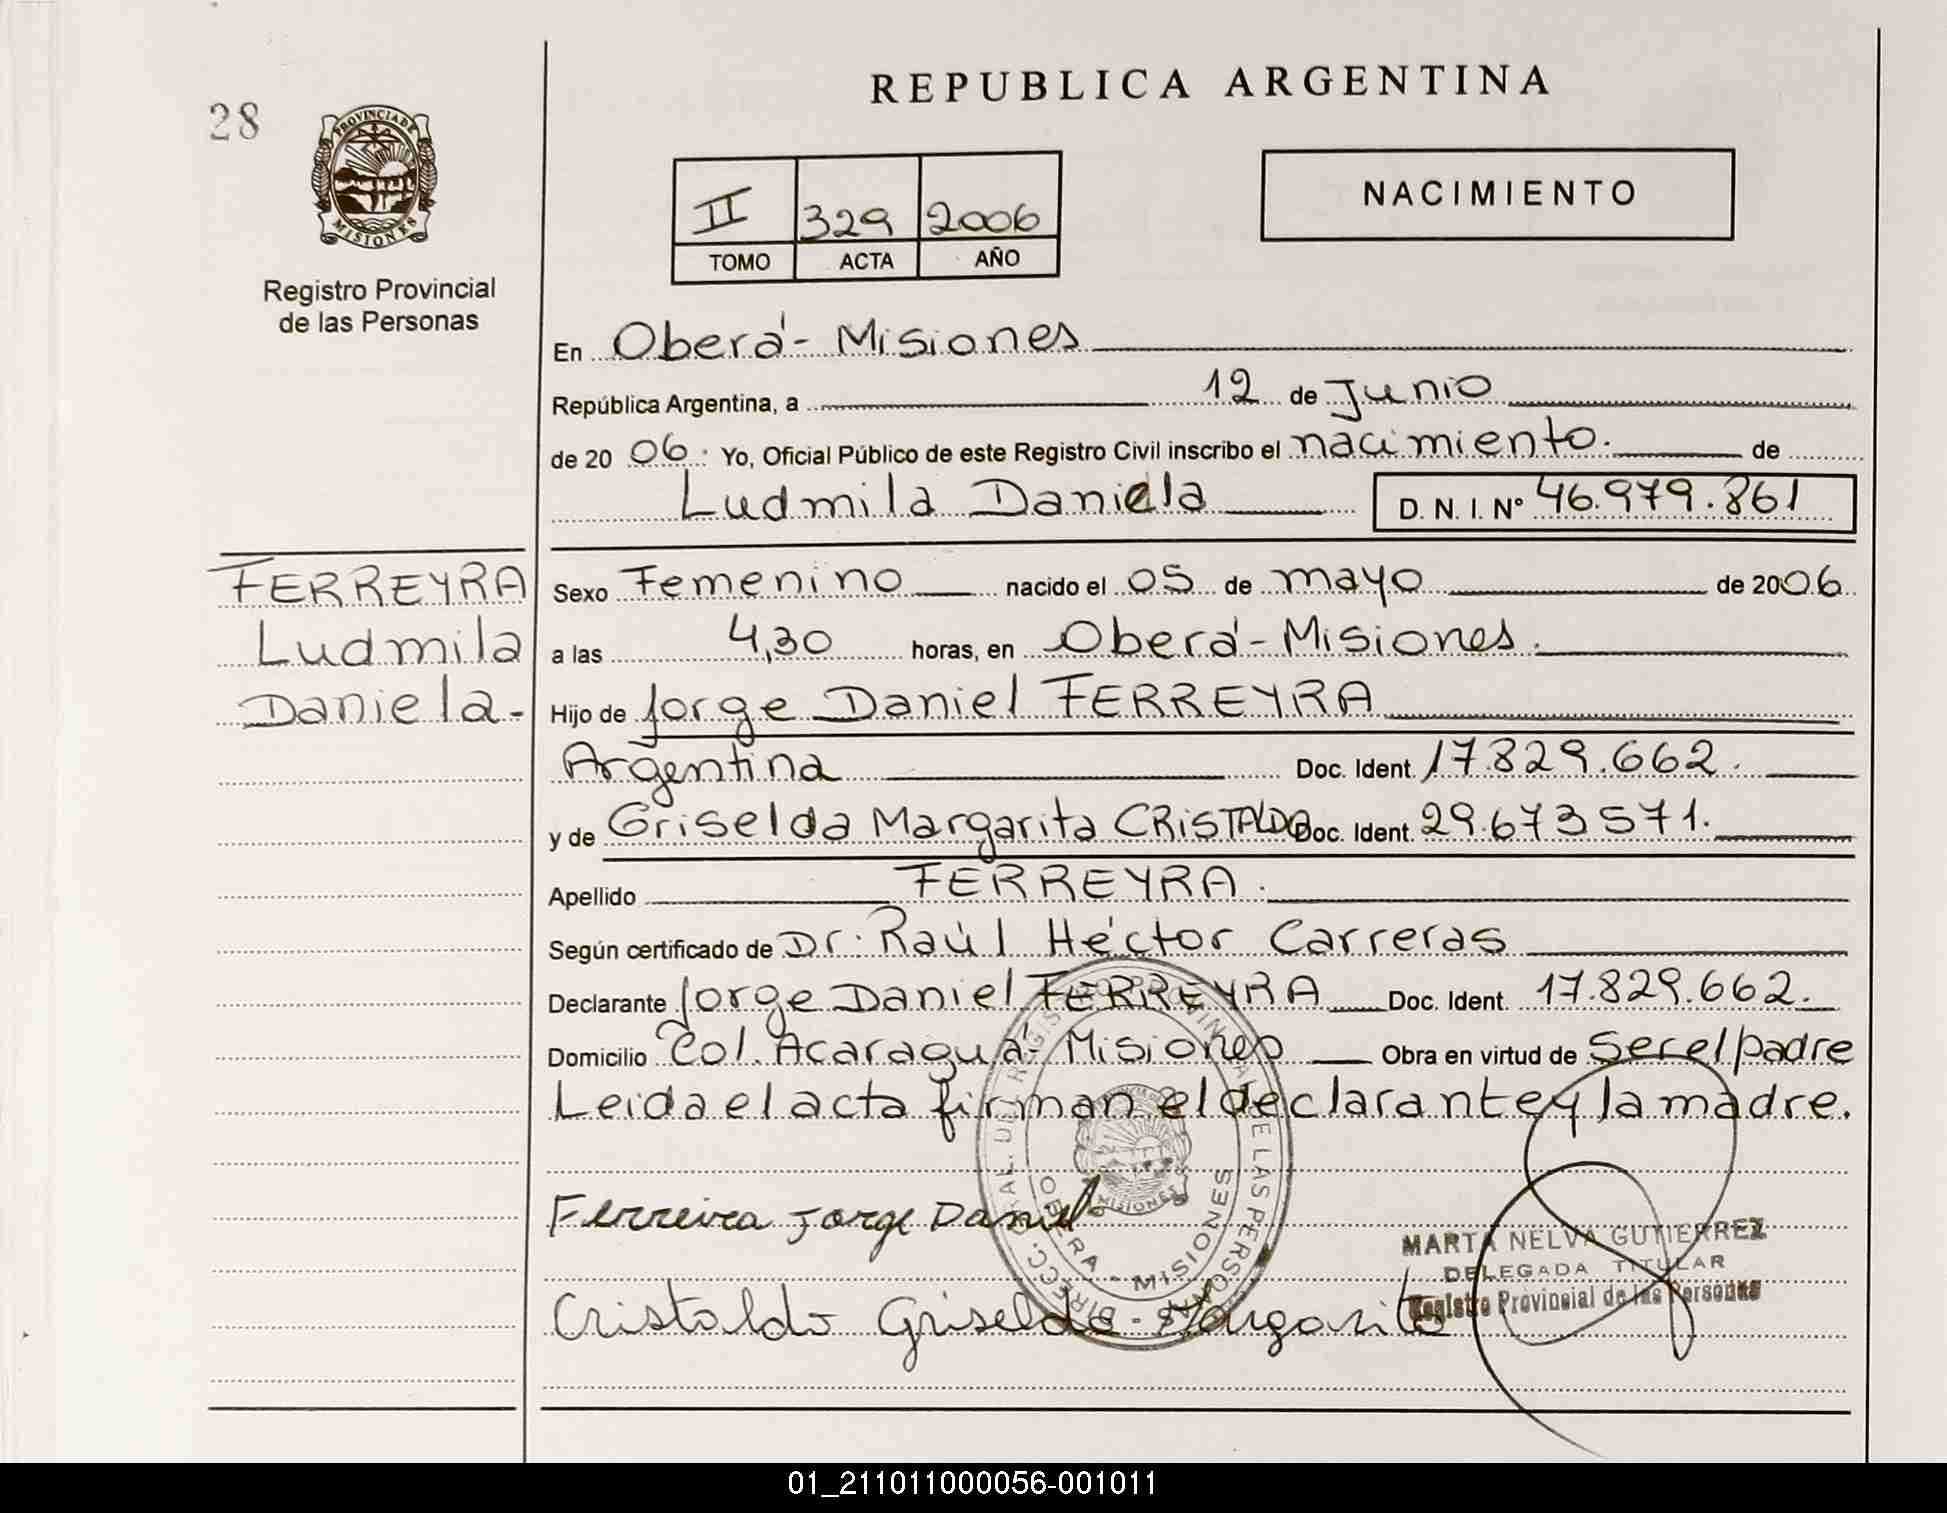 REPUBLICA ARGENTINA
28
PROVINCIA DE
MISIONES
Registro Provincial
de las Personas
II 329 2006
TOMO ACTA AÑO
NACIMIENTO
En Oberá - Misiones
República Argentina, a 12 de Junio
de 20 06. Yo, Oficial Público de este Registro Civil inscribo el nacimiento. de
Ludmila Daniela D. N. I. Nº 46.979.861
FERREYRA
Ludmila
Daniela-
Sexo Femenino nacido el 05 de mayo de 2006
a las 4,30 horas, en Oberá - Misiones.
Hijo de Jorge Daniel FERREYRA
Argentina Doc. Ident. 17.829.662.
y de Griselda Margarita CRISTALDO Doc. Ident. 29.673571.
Apellido FERREYRA.
Según certificado de Dr. Raúl Héctor Carreras
Declarante Jorge Daniel FERREYRA Doc. Ident. 17.829.662.
Domicilio Col. Acaraguá - Misiones Obra en virtud de Ser el padre
Leida el acta firman el declarante y la madre.
DIRECC. GRAL. DE REGISTRO PROVINCIAL DE LAS PERSONAS
OBERA - MISIONES
MISIONES
Ferreira Jorge Daniel
MARTA NELVA GUTIERREZ
DELEGADA TITULAR
Registro Provincial de las Personas
Cristaldo Griselda - Margarita
01_211011000056-001011